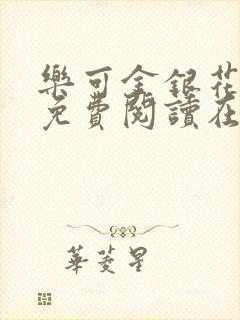 樂可金銀花
免費閱讀在
華菱星